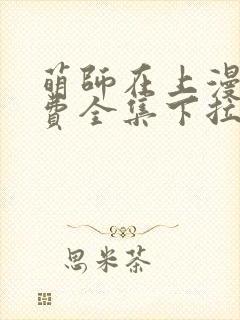 萌師在上漫
費全集下拉
思米茶